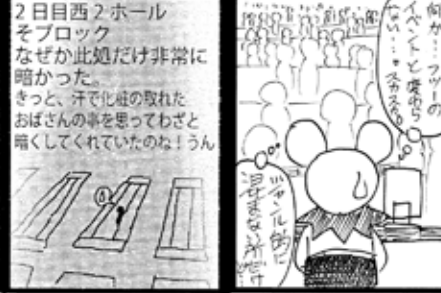 2日目西2ホール
そブロック
なぜか此処だけ非常に
暗かった。
きっと、汗で化粧の取れた
おばさんの事を思ってわざと
暗くしてくれていたのね！うん
何か…フツーの
イベントと変わら
ない…
スカスカ
ジャンル的に
混まない所だけど